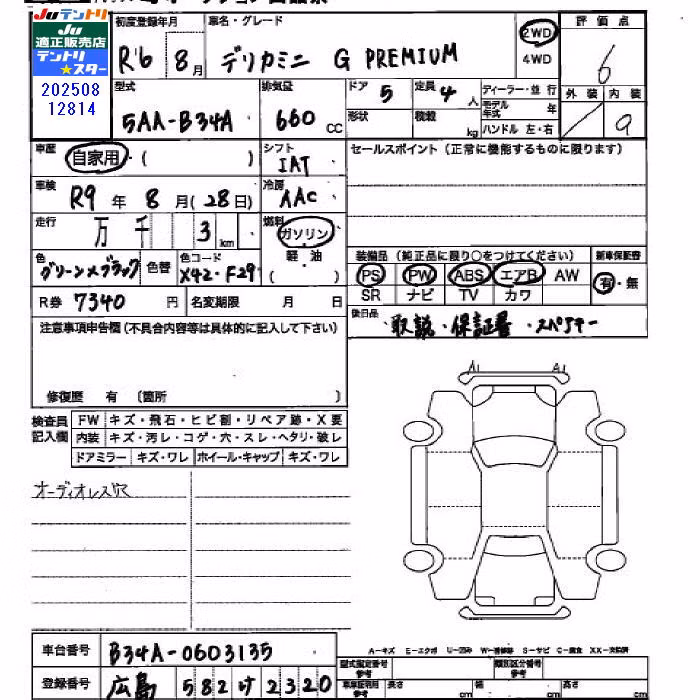 JUテントリ
JU
適正販売店
テントリ
★スター
202508
12814
初度登録年月
R6 8月
車名・グレード
デリカミニ G PREMIUM
2WD
4WD
評価点
6
外装 内装
9
型式
5AA-B34A
排気量
660 CC
ドア 5
形状
定員 4 人
積載 kg
ディーラー・並行
モデル年式 年
ハンドル 左・右
車歴
自家用・( )
シフト
IAT
セールスポイント(正常に機能するものに限ります)
車検
R9年 8月(28日)
冷房
AAC
走行
万 千 3 km
燃料
ガソリン
軽・油
( )
色
グリーン×ブラック
色替
色コード
X42・F29
装備品(純正品に限り○をつけてください)
新車保証書
PS PW ABS エアB AW
有・無
SR ナビ TV カワ
R券 7340 円
名変期限 月 日
後日品
取説・保証書・スペアキー
注意事項申告欄(不具合内容等は具体的に記入して下さい)
修復歴 有 〔箇所 〕
検査員
記入欄
FW キズ・飛石・ヒビ割・リペア跡・X要
内装 キズ・汚レ・コゲ・穴・スレ・ヘタリ・破レ
ドアミラー キズ・ワレ ホイール・キャップ キズ・ワレ
オーディオレス穴
A-キズ E-エクボ U-凹み W-補修跡 S-サビ C-腐食 XX-交換済
車台番号 B34A-0603135
登録番号 広島 582 け 2320
型式指定番号
参考
類別区分番号
参考
長さ cm 幅 cm 高さ cm